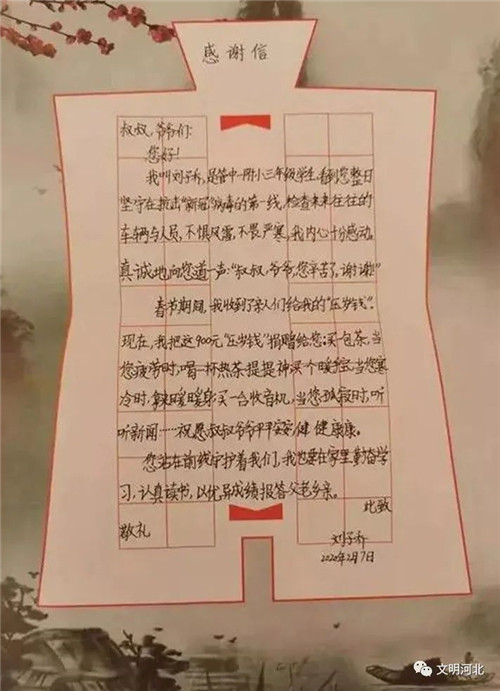 感谢信
叔叔、爷爷们:
您好!
我叫刘子乔,是管中一附小三年级学生,看到您整日
坚守在抗击“新冠”病毒的第一线,检查来来往往的
车辆与人员,不惧风雪,不畏严寒,我内心十分感动,
真诚地向您道一声:“叔叔,爷爷,您辛苦了,谢谢!”
春节期间,我收到了亲人们给我的“压岁钱”.
现在,我把这900元“压岁钱”捐赠给您:买一包茶,当
您疲劳时,喝一杯热茶提提神买个暖宝,当您寒
冷时,暖暖身买一台收音机,当您孤寂时,听
听新闻……祝愿叔叔爷爷平平安安健健康康。
您站在前线守护着我们,我也要在家里勤奋学
习,认真读书,以优品成绩报答父老乡亲。
此致
敬礼
刘子乔
2020年2月7日
文明河北